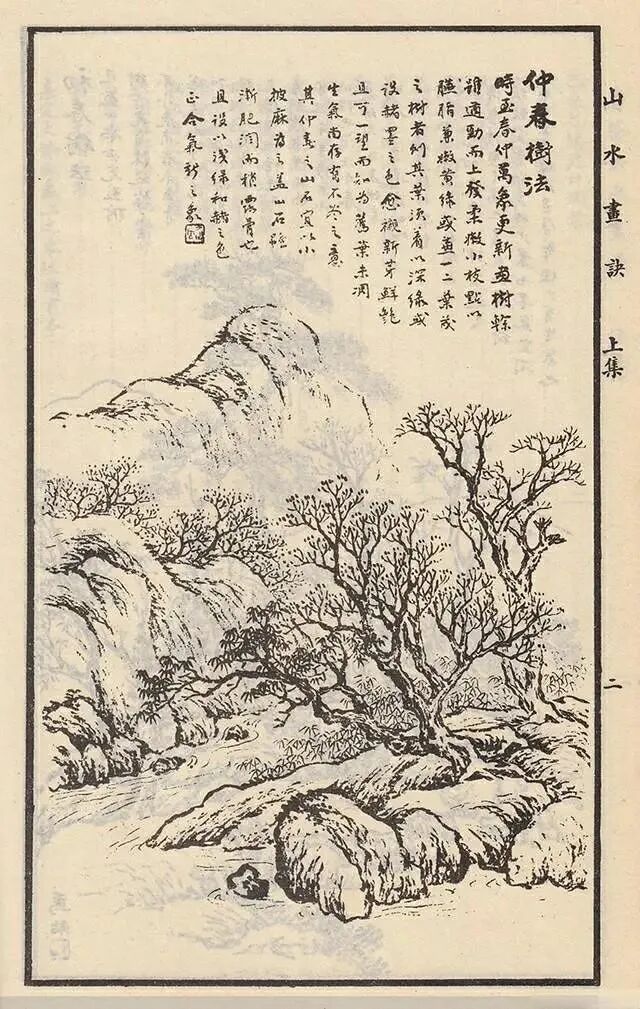 山水畫訣 上集 二
仲春樹法
時至春仲萬象更新畫樹榦
雖遒勁而上發柔嫩小枝點以
臙脂兼嫩黃綠或畫一二葉茂
之樹者則其葉須着以深綠或
設赭墨之色愈襯新芽鮮艷
且可一望而知為舊葉未凋
生氣尚存有不盡之意
其仲春之山石宜以小
披麻為之蓋山石雖
漸肥潤而稍露骨也
且設以淺綠和赭之色
正合氣新之象